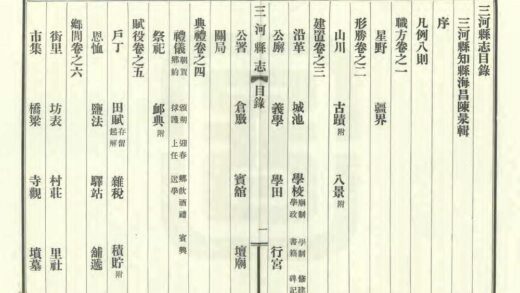 三河縣志目錄
三河縣知縣海昌陳㫤輯
序
凡例八則
職方卷之一
星野　疆界
形勝卷之二
山川　古蹟附　八景附
建置卷之三
沿革　城池　學校廟制　學制　修建　學政　書籍　碑記
公廨　義學　學田　行宮
三河縣志　目錄　一
公署　倉廒　賓舘　壇廟
關局
典禮卷之四
禮儀朝賀　頒朔　迎春　鄉飲酒禮　賓興　鄉約　救護　上任　送學
祭祀　䘏典附
賦役卷之五
戶丁　田賦存留　起解　雜稅　積貯附
恩恤　鹽法　驛站　舖遞
鄉閭卷之六
街里　坊表　村莊　里社
市集　橋梁　寺觀　墳墓